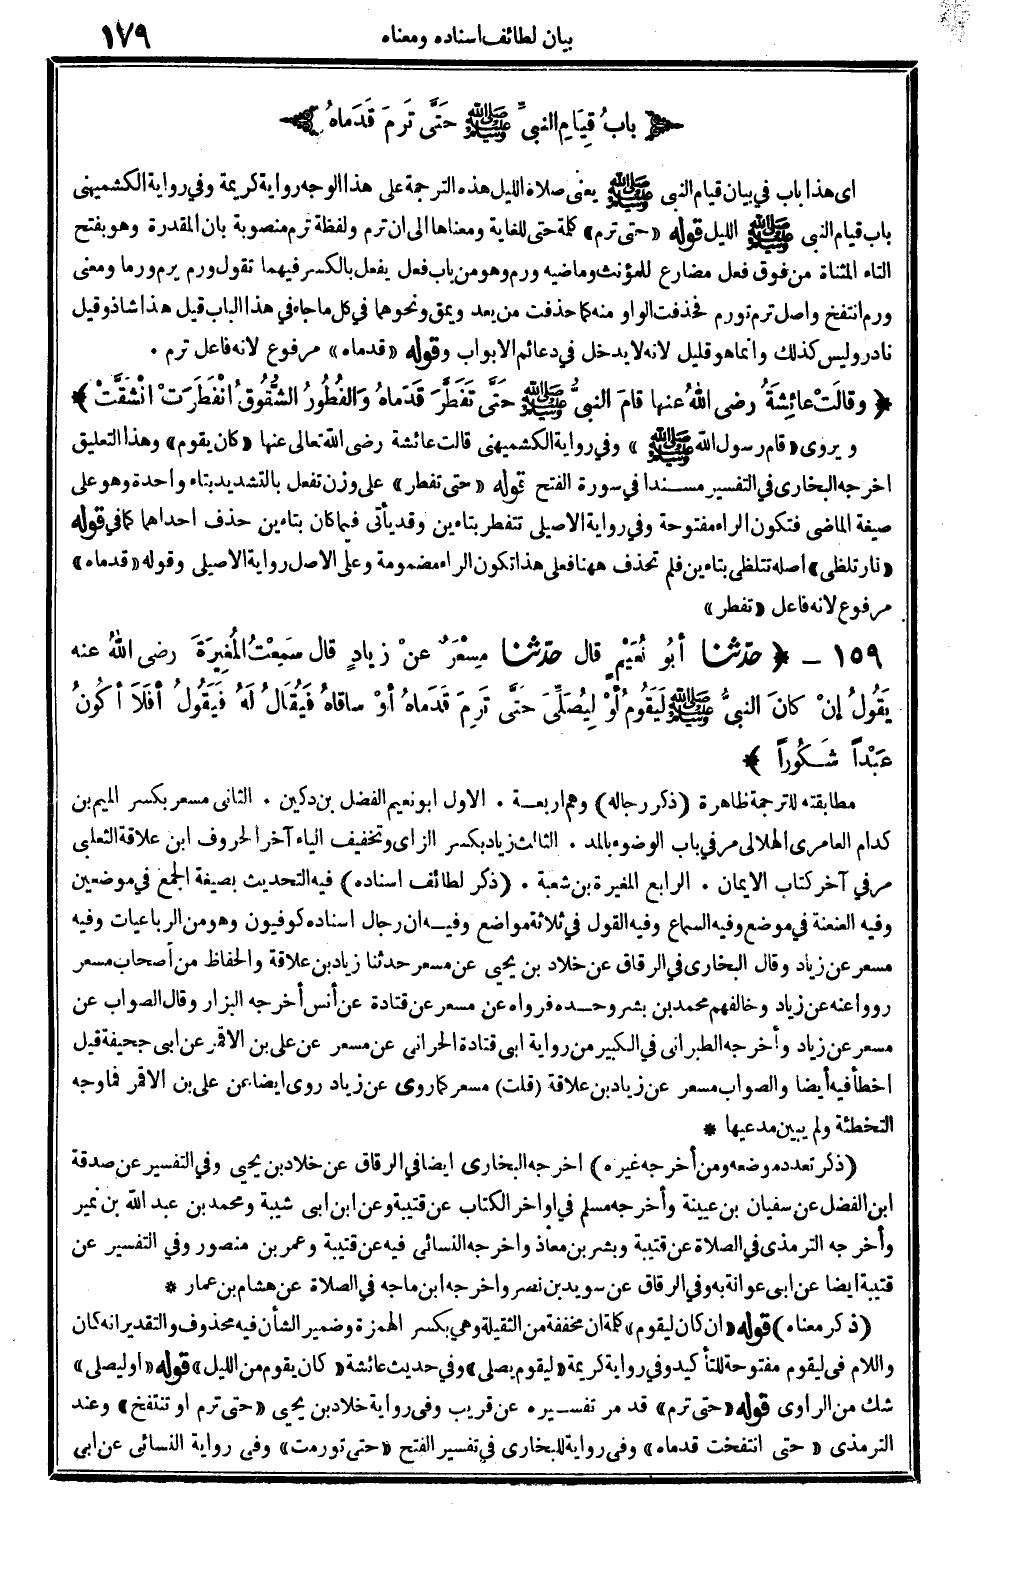 بيان لطائف اسناده ومعناه
١٧٩
﴿ بابُ قِيَامِ النبيِّ ﷺ حَتَّى تَرِمَ قَدَماهُ ﴾
اى هذا باب في بيان قيام النبى ﷺ يعنى صلاة الليل هذه الترجمة على هذا الوجه رواية كريمة وفي رواية الكشميهنى
باب قيام النبى ﷺ الليل قوله «حتى ترم» كلمة حتى للغاية ومعناها الى ان ترم ولفظة ترم منصوبة بان المقدرة وهو بفتح
التاء المثناة من فوق فعل مضارع للمؤنث وماضيه ورم وهو من باب فعل يفعل بالكسر فيهما تقول ورم يرم ورما ومعنى
ورم انتفخ واصل ترم تورم فحذفت الواو منه كما حذفت من يعد ويمق ونحوهما في كل ما جاء في هذا الباب قيل هذا شاذ وقيل
نادر وليس كذلك وانما هو قليل لانه لا يدخل في دعائم الابواب وقوله «قدماه» مرفوع لانه فاعل ترم .
﴿ وقالَتْ عائِشَةُ رضى اللهُ عنها قامَ النبىُّ ﷺ حَتَّى تَفَطَّرَ قَدَماهُ وَالفُطُورُ الشُّقُوقُ انْفَطَرَتْ انْشَقَّتْ ﴾
ويروى «قام رسول الله ﷺ» وفي رواية الكشميهنى قالت عائشة رضى الله تعالى عنها «كان يقوم» وهذا التعليق
اخرجه البخارى في التفسير مسندا في سورة الفتح قوله «حتى تفطر» على وزن تفعل بالتشديد بتاء واحدة وهو على
صيغة الماضى فتكون الراء مفتوحة وفي رواية الاصيلى تتفطر بتاءين وقد يأتى فيما كان بتاءين حذف احداهما كما في قوله
«نار تلظى» اصله تتلظى بتاءين فلم تحذف ههنا فعلى هذا تكون الراء مضمومة وعلى الاصل رواية الاصيلى وقوله «قدماه»
مرفوع لانه فاعل «تفطر»
١٥٩ - ﴿ حدّثنا أبُو نُعَيْمٍ قال حدّثنا مِسْعَرٌ عنْ زيادٍ قال سَمِعْتُ المُغِيرَةَ رضى اللهُ عنه
يَقُولُ إنْ كانَ النبىُّ ﷺ لَيَقُومُ أوْ لِيُصَلِّىَ حَتَّى تَرِمَ قَدَماهُ أوْ ساقاهُ فَيُقالُ لَهُ فَيَقُولُ أفَلاَ أكُونُ
عَبْداً شَكُوراً ﴾
مطابقته للترجمة ظاهرة (ذكر رجاله) وهم اربعة . الاول ابو نعيم الفضل بن دكين . الثانى مسعر بكسر الميم بن
كدام العامرى الهلالى مر في باب الوضوء بالمد . الثالث زياد بكسر الزاى وتخفيف الياء آخر الحروف ابن علاقة الثعلبى
مر في آخر كتاب الايمان . الرابع المغيرة بن شعبة . (ذكر لطائف اسناده) فيه التحديث بصيغة الجمع في موضعين
وفيه العنعنة في موضع وفيه السماع وفيه القول في ثلاثة مواضع وفيه ان رجال اسناده كوفيون وهو من الرباعيات وفيه
مسعر عن زياد وقال البخارى في الرقاق عن خلاد بن يحيى عن مسعر حدثنا زياد بن علاقة والحفاظ من أصحاب مسعر
رووا عنه عن زياد وخالفهم محمد بن بشر وحده فرواه عن مسعر عن قتادة عن أنس أخرجه البزار وقال الصواب عن
مسعر عن زياد وأخرجه الطبرانى في الكبير من رواية ابى قتادة الحرانى عن مسعر عن على بن الاقمر عن ابى جحيفة قيل
اخطأ فيه أيضا والصواب مسعر عن زياد بن علاقة (قلت) مسعر كما روى عن زياد روى ايضا عن على بن الاقمر فما وجه
التخطئة ولم يبين مدعيها *
(ذكر تعدد موضعه ومن أخرجه غيره) اخرجه البخارى ايضا في الرقاق عن خلاد بن يحيى وفي التفسير عن صدقة
ابن الفضل عن سفيان بن عيينة وأخرجه مسلم في اواخر الكتاب عن قتيبة وعن ابن ابى شيبة ومحمد بن عبد الله بن نمير
وأخرجه الترمذى في الصلاة عن قتيبة وبشر بن معاذ واخرجه النسائى فيه عن قتيبة وعمر بن منصور وفي التفسير عن
قتيبة ايضا عن ابى عوانة به وفي الرقاق عن سويد بن نصر واخرجه ابن ماجه في الصلاة عن هشام بن عمار *
(ذكر معناه) قوله «ان كان ليقوم» كلمة ان مخففة من الثقيلة وهي بكسر الهمزة وضمير الشأن فيه محذوف والتقدير انه كان
واللام في ليقوم مفتوحة للتأكيد وفي رواية كريمة «ليقوم يصلى» وفي حديث عائشة «كان يقوم من الليل» قوله «او ليصلى»
شك من الراوى قوله «حتى ترم» قد مر تفسيره عن قريب وفى رواية خلاد بن يحيى «حتى ترم او تنتفخ» وعند
الترمذى «حتى انتفخت قدماه» وفى رواية للبخارى في تفسير الفتح «حتى تورمت» وفى رواية النسائى عن ابى